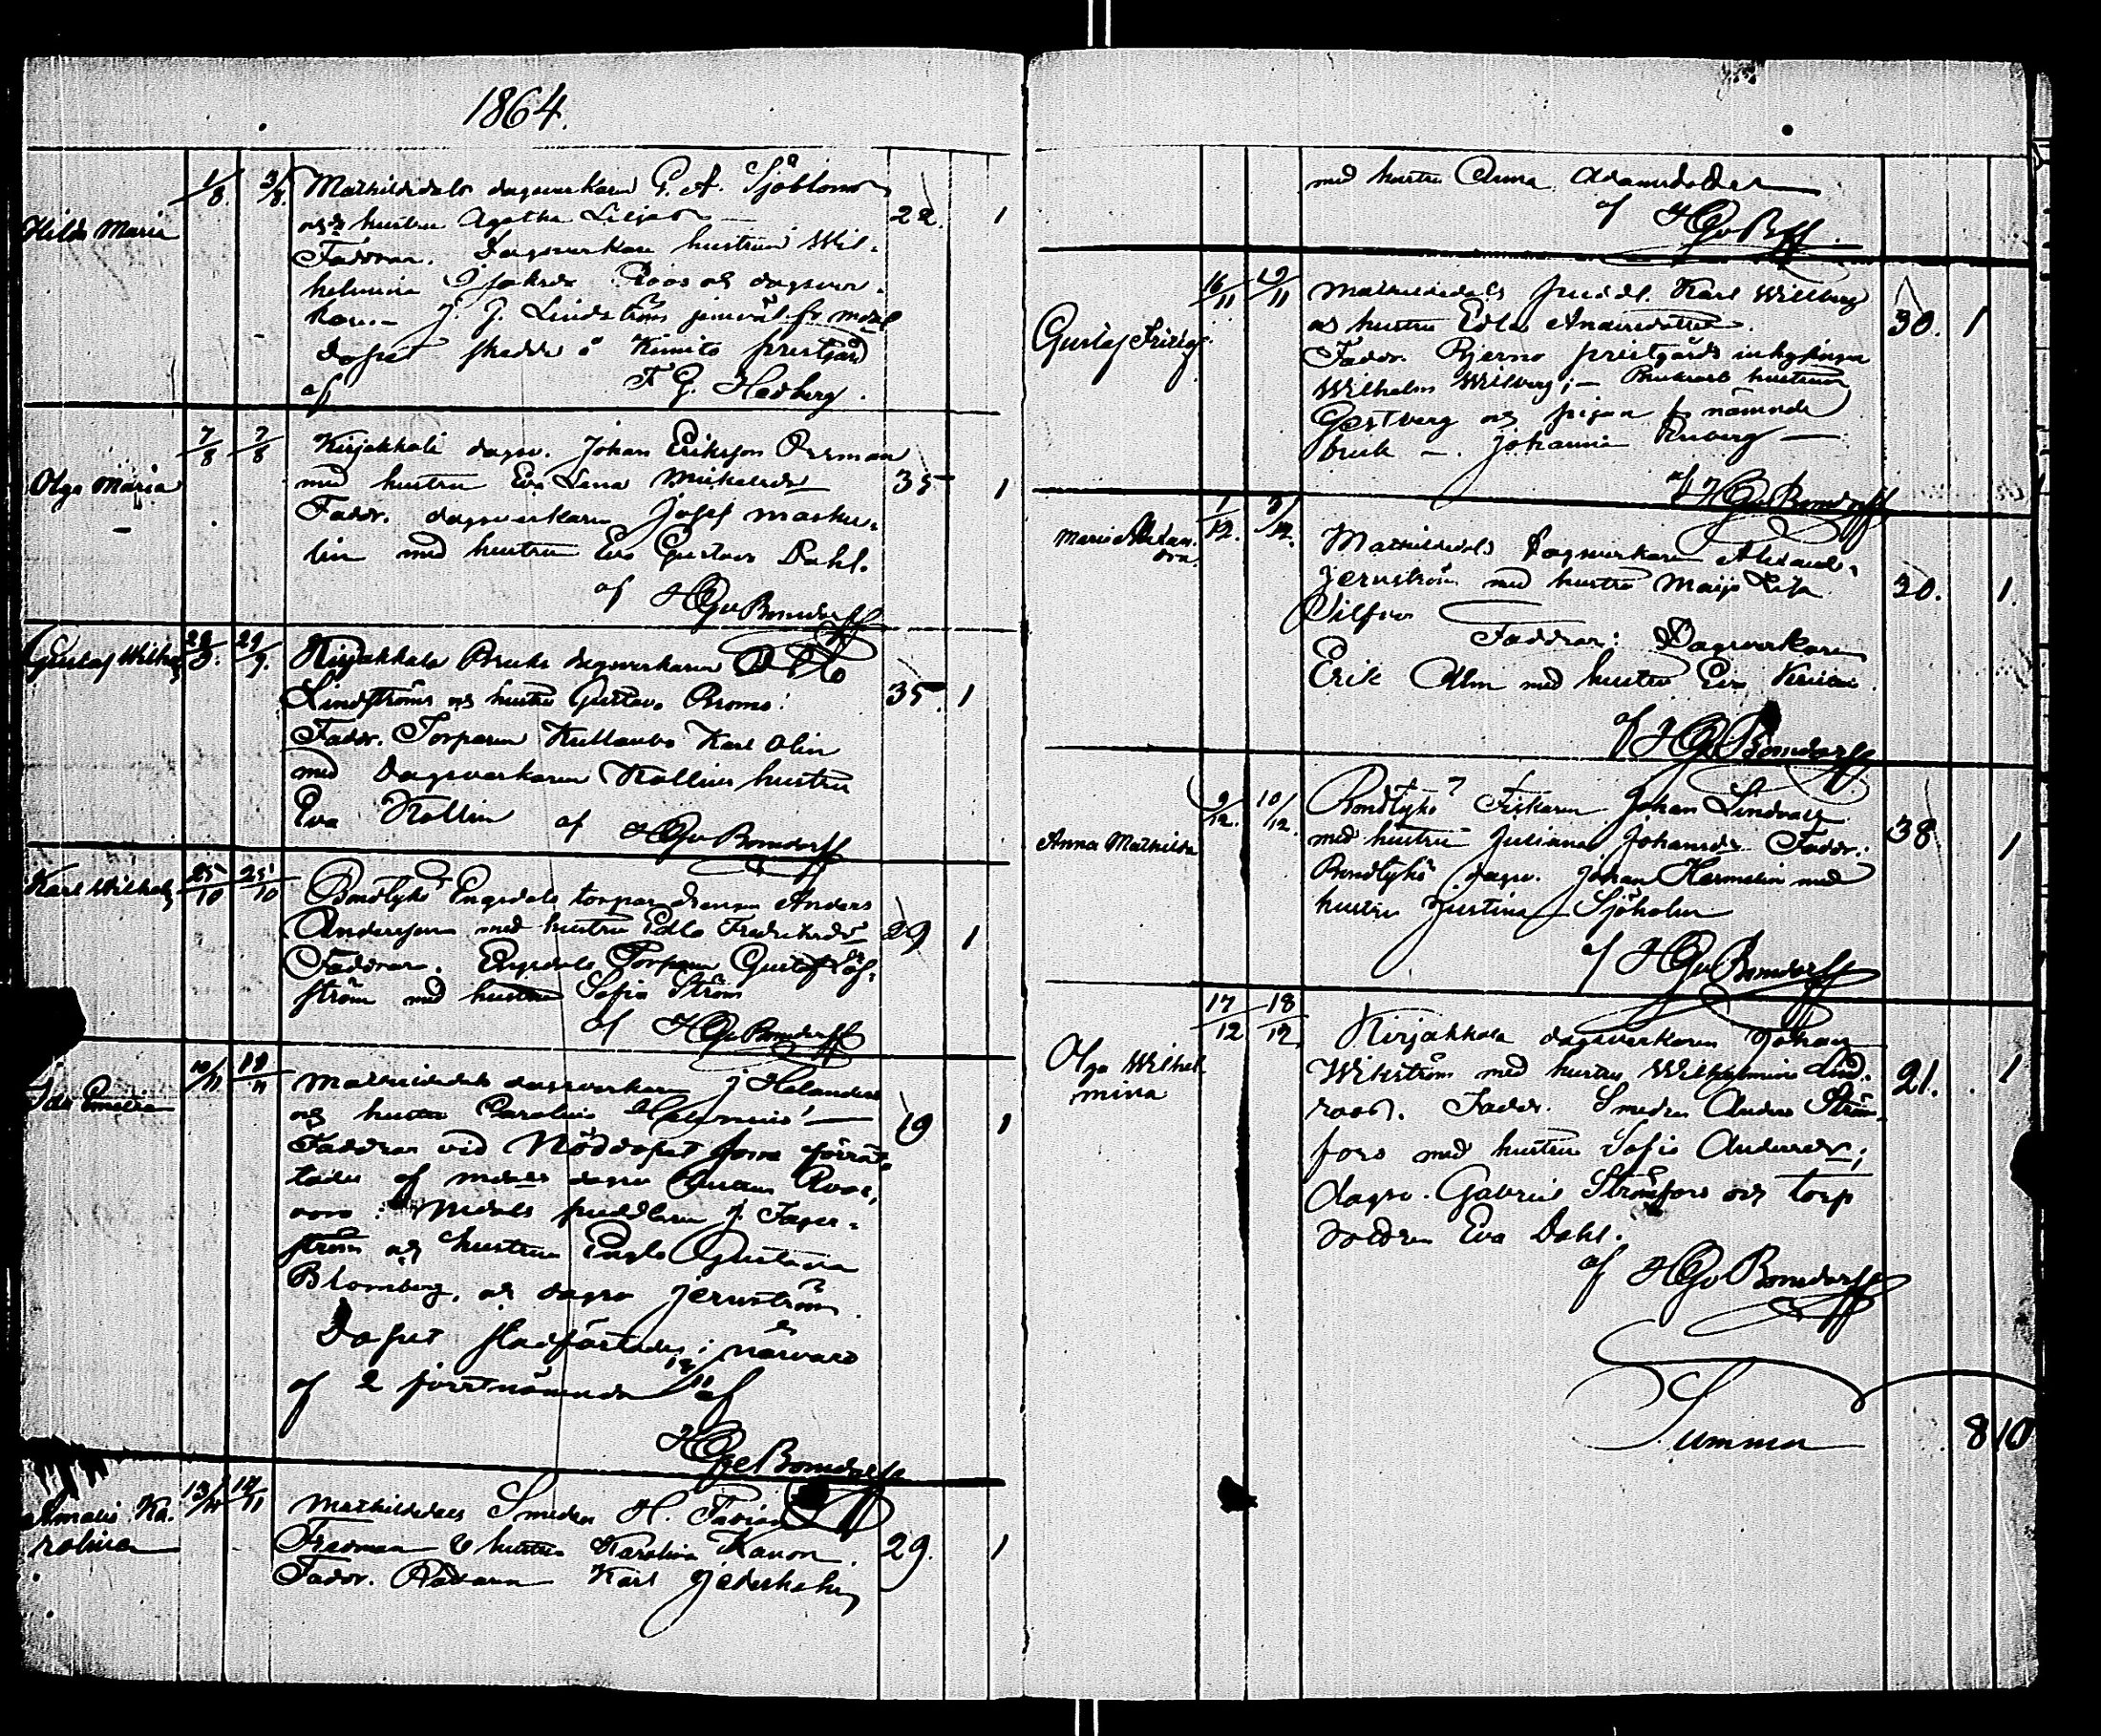 1864.
Hilda Maria
1/8. 3/8.
Mathildedals dagsverkaren G. A. Sjöblom
och hustru Agatha Liljeros
22. 1
Faddrar. Dagsverkare hustrun Wil-
helmina Isaksdr Roos och dagsver-
karen J. J. Lindström jemväl fr mdal
Dopet skedde å Kimito prestgård
af F G. Hedberg.
Olga Maria
7/8 7/8
Kirjakkala dagsv. Johan Eriksson Örman
med hustru Eva Lena Mickelsdr
35 1
Faddr. dagsverkaren Josef Masku-
lin med hustru Eva Gustava Dahl.
af HGvBonsdorff
Gustaf Wilhelm
28/9. 29/9.
Kirjakkala Bruks dagsverkaren
Lindströms och hustru Gustava Broms:
35. 1
Faddr. Torparen Kullanbo Karl Olin
med Dagsverkaren Kollins hustru
Eva Kollin af HGvBonsdorff
Karl Wilhelm
25/10 25/10
Bondtykö Engsdals torpar drengen Anders
Andersson med hustru Edla Fredriksdr
29 1
Faddrar. Engsdals Torparen Gustaf Löf-
ström med hustru Sofia Ström
af HGvBonsdorff
Ida Emelia
10/11 12/11
Mathildedals dagsverkaren J Helander
och hustru Carolina
19 1
Faddrar vid Nöddopet som förrät-
tades af mdals dagsv Roos,
voro: Mdals puddlaren J. Fager-
ström och hustrun Engla Gustava
Blomberg, och dagsv Jernström
Dopet stadfästades i närvaro
af 2 förstnämnda 12/11 af
HGvBonsdorff
Amalia Ka-
rolina
13/11 14/11
Mathildedals Smeden H. Fabian
Fredman & hustru Karolina Kanon.
29. 1
Faddr. Rättaren Karl Jederholm
med hustru Anna Adamsdotter
af HGvBff.
Gustaf Fritiof
16/11 19/11
Mathildedals puddl. Karl Willberg
och hustru Edla Andersdotter.
30. 1
Faddr. Bjerno prestgårds inhysingen
Wilhelm Willberg; Bruksarb hustrun
Gestberg och pigan fr nämnde
bruk Johanna Ruberg
af HGvBonsdorff
Maria Alexan-
dra.
1/12. 3/12.
Mathildedals Dagsverkaren Alexand.
Jernström med hustru Maija Lisa
Silfver
30. 1.
Faddrar: Dagsverkaren
Erik Alm med hustru Eva
af HGvBonsdorff
Anna Mathilda
9/12. 10/12.
Bondtykö Fiskaren Johan Lindvall
med hustru Juliana Johansdr Faddr.:
38 1
Bondtykö dagsv. Johan Hermelin med
hustru Justina Sjöholm
af HGvBonsdorff
Olga Wilhel
mina
17/12 18/12
Kirjakkala dagsverkaren Johan
Wikström med hustru Wilhelmina Lind-
roos. Faddr. Smeden Anders Ström-
21. 1
fors med hustru Sofia Andersdr;
dagsv. Gabriel Strömfors och torp
dottren Eva Dahl.
af HGvBonsdorff
Summa 8 10